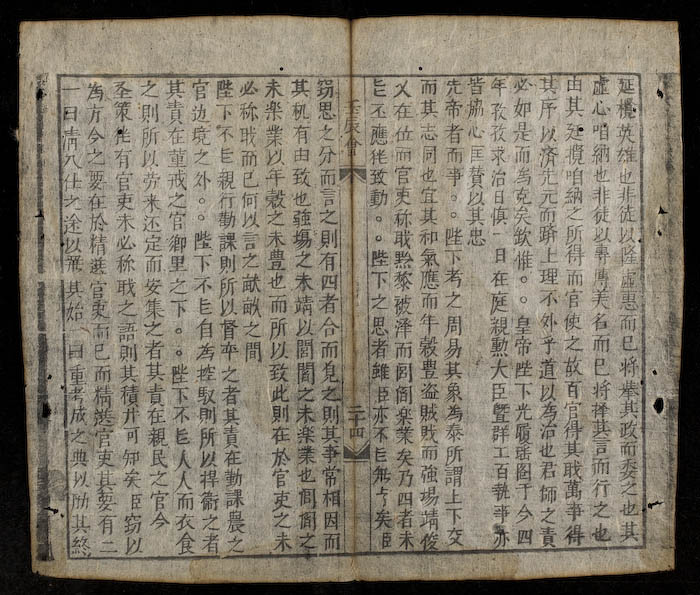 延攬英雄也非徒以隆虛惠而已将舉其政而委之也其
虛心咱納也非徒以尋傳美名而已将擇其言而行之也
由其延攬咱納之所得而官使之故百官得其戝萬事得
其序以済元元而躋上理不外乎道以為治也君師之責
必如是而為克矣欽惟。。皇帝陛下光履瑤图于今四
年孜孜求治日慎一日在庭親勲大臣曁群工百執事亦
皆協心匡賛以其忠
先帝者而事。。陛下考之周易其象為泰所謂上下交
而其志同也宜其和氣應而年穀豊盗贼戢而強場靖俊
乂在位而官吏称戝黔黎被泽而闾阎楽業矣乃四者未
㠯不應徃致動。。陛下之思者雖臣亦不㠯無亐矣臣
壬辰會
二十四
窃思之分而言之則有四者合而見之則其事常相因而
其机有由致也強場之未靖以闾閻之未楽業也闾阎之
未楽業以年穀之未豊也而所以致此則在於官吏之未
必称戝而已何以言之畎畝之間
陛下不㠯親行勸課則所以督率之者其責在勸課農之
官边境之外。。陛下不㠯自為控馭則所以捍衛之者
其責在董戒之官鄉里之下。。陛下不㠯人人而衣食
之則所以劳来还定而安集之者其責在親民之官今
圣策徃有官吏未必称戝之語則其積并可知矣臣窃以
為方今之要在於精選官吏而已而精选官吏其要有二
一曰清入仕之途以严其始一曰重考成之典以励其終